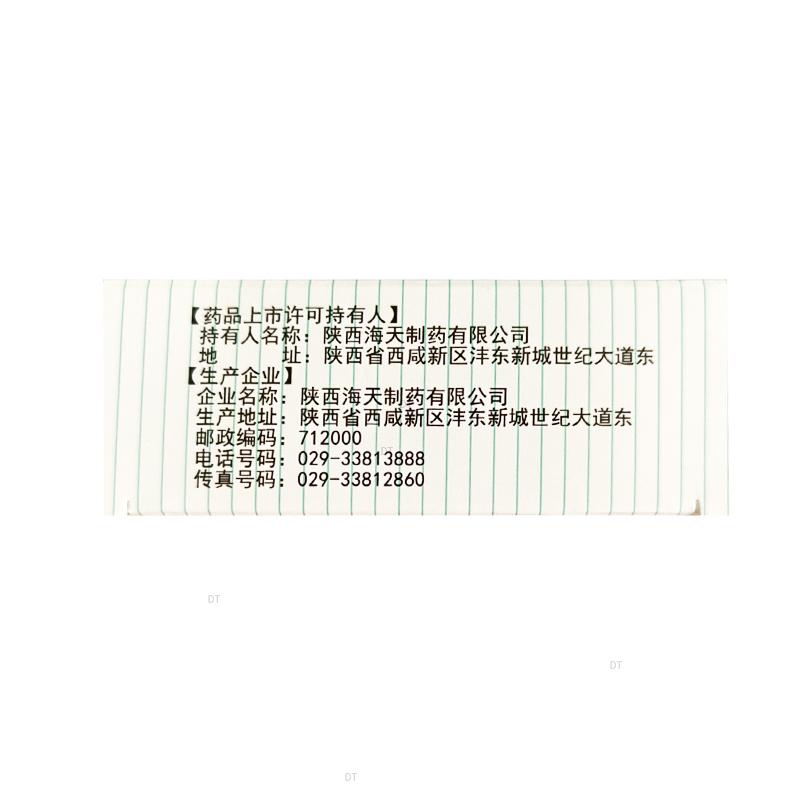 【药品上市许可持有人】
持有人名称：陕西海天制药有限公司
地 址：陕西省西咸新区沣东新城世纪大道东
【生产企业】
企业名称：陕西海天制药有限公司
生产地址：陕西省西咸新区沣东新城世纪大道东
邮政编码：712000
电话号码：029-33813888
传真号码：029-33812860
DT
DT
DT
DT